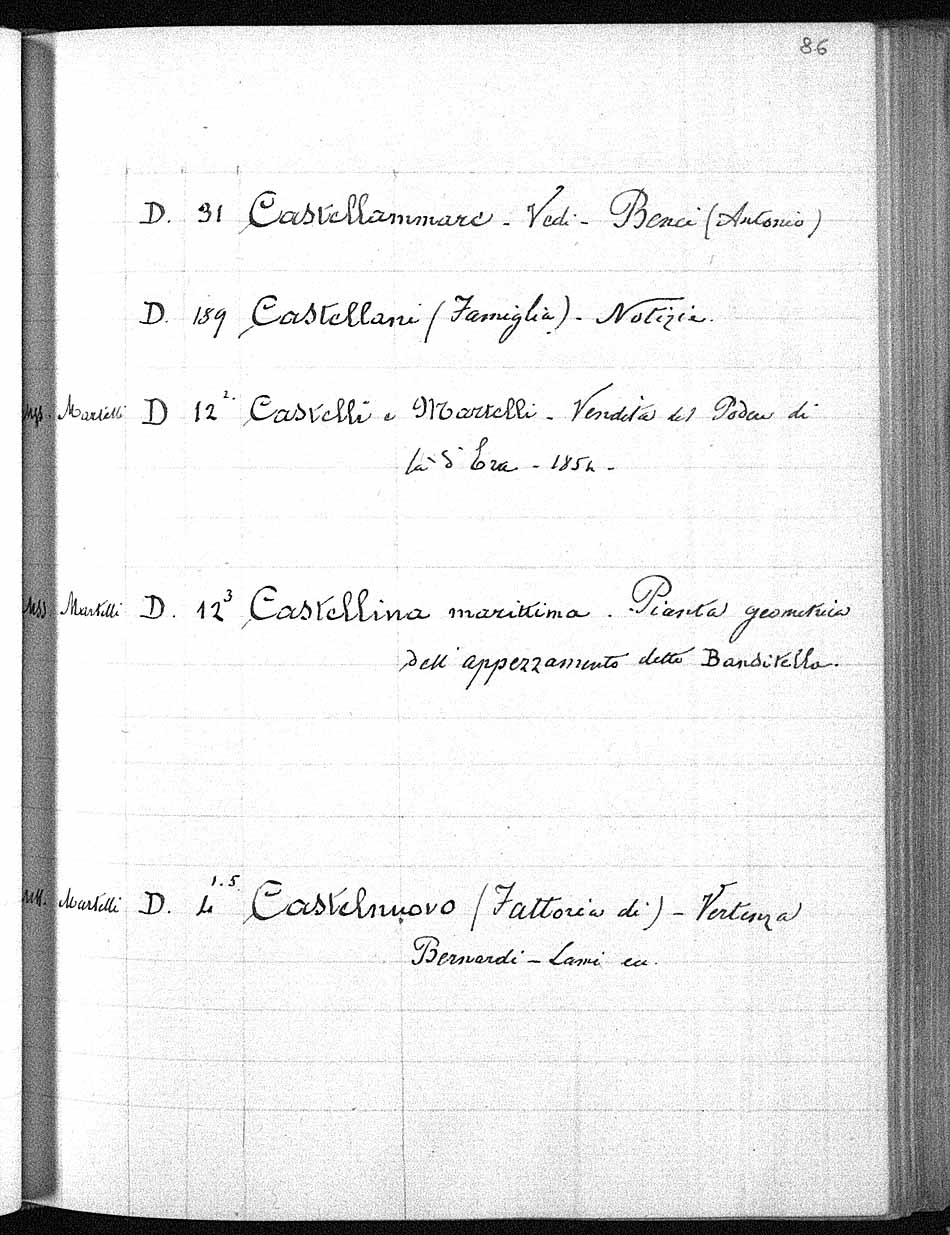 86
D. 31 Castellammare - Vedi - Benci (Antonio)
D. 189 Castellani (Famiglia) - Notizie.
Mss. Martelli D 12 2. Castelli e Martelli - Vendita del Podere di
Era - 1854 -
Mss Martelli D. 12 3 Castellina marittima. Pianta geometrica
dell' appezzamento detto Banditella.
Mss. Martelli D. 4 1.5. Castelnuovo (Fattoria di) - Vertenza
Bernardi - Lami ecc.